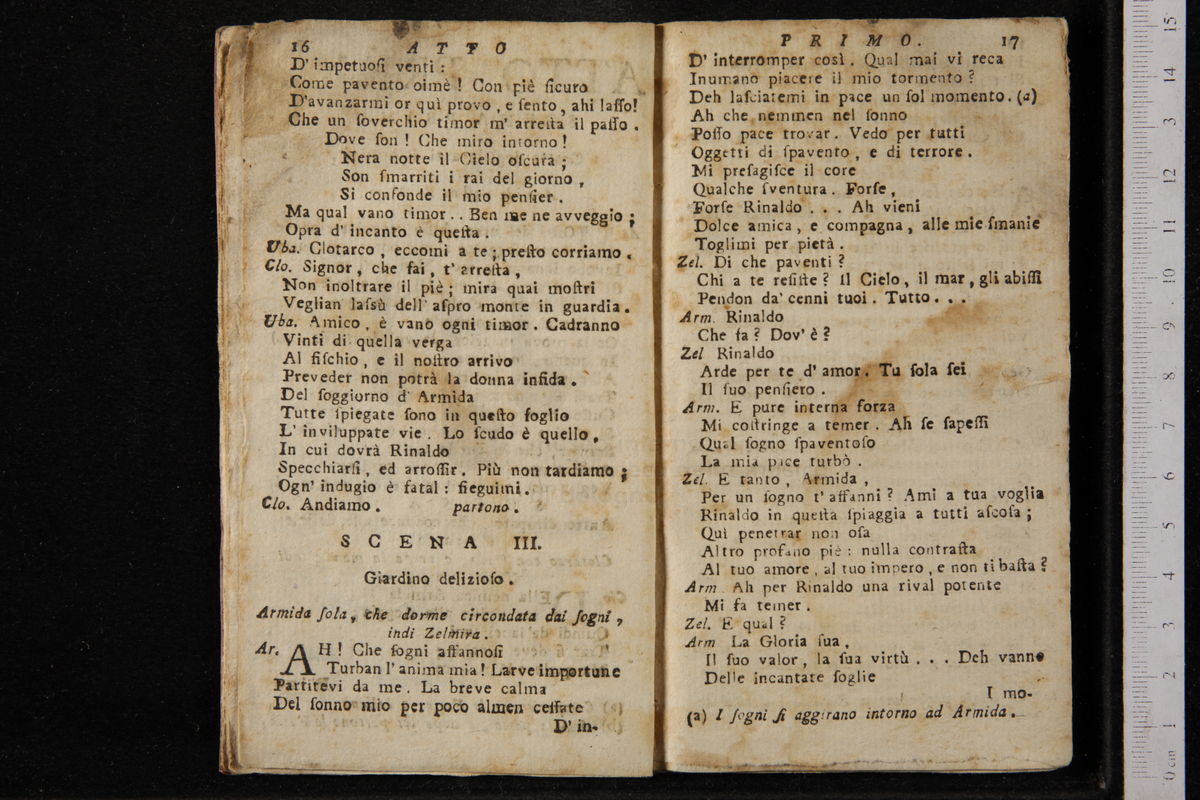 16 ATTO
D' impetuoſi venti :
Come pavento oimè ! Con piè ſicuro
D'avanzarmi or quì provo , e ſento , ahi laſſo!
Che un ſoverchio timor m' arreſta il paſſo .
Dove ſon ! Che miro intorno !
Nera notte il Cielo oſcura ;
Son ſmarriti i rai del giorno ,
Si confonde il mio penſier .
Ma qual vano timor . . Ben me ne avveggio ;
Opra d' incanto è queſta .
Uba. Clotarco , eccomi a te ; preſto corriamo .
Clo. Signor , che fai , t' arreſta ,
Non inoltrare il piè ; mira quai moſtri
Veglian laſsù dell' aſpro monte in guardia .
Uba. Amico , è vano ogni timor . Cadranno
Vinti di quella verga
Al fiſchio , e il noſtro arrivo
Preveder non potrà la donna infida .
Del ſoggiorno d' Armida
Tutte ſpiegate ſono in queſto foglio
L' inviluppate vie . Lo ſcudo è quello ,
In cui dovrà Rinaldo
Specchiarſi , ed arroſſir . Più non tardiamo ;
Ogn' indugio è fatal : ſieguimi .
Clo. Andiamo . partono .
SCENA III.
Giardino delizioſo .
Armida ſola , che dorme circondata dai ſogni ,
indi Zelmira .
Ar. AH ! Che ſogni affannoſi
Turban l' anima mia ! Larve importune
Partitevi da me . La breve calma
Del ſonno mio per poco almen ceſſate
D' in-
PRIMO. 17
D' interromper così . Qual mai vi reca
Inumano piacere il mio tormento ?
Deh laſciatemi in pace un ſol momento . (a)
Ah che nemmen nel ſonno
Poſſo pace trovar . Vedo per tutti
Oggetti di ſpavento , e di terrore .
Mi preſagiſce il core
Qualche ſventura . Forſe ,
Forſe Rinaldo . . . Ah vieni
Dolce amica , e compagna , alle mie ſmanie
Toglimi per pietà .
Zel. Di che paventi ?
Chi a te reſiſte ? Il Cielo , il mar , gli abiſſi
Pendon da' cenni tuoi . Tutto . . .
Arm. Rinaldo
Che fa ? Dov' è ?
Zel Rinaldo
Arde per te d' amor . Tu ſola ſei
Il ſuo penſiero .
Arm. E pure interna forza
Mi coſtringe a temer . Ah ſe ſapeſſi
Qual ſogno ſpaventoſo
La mia pace turbò .
Zel. E tanto , Armida ,
Per un ſogno t' affanni ? Ami a tua voglia
Rinaldo in queſta ſpiaggia a tutti aſcoſa ;
Quì penetrar non oſa
Altro profano piè : nulla contraſta
Al tuo amore , al tuo impero , e non ti baſta ?
Arm. Ah per Rinaldo una rival potente
Mi fa temer .
Zel. E qual ?
Arm La Gloria ſua ,
Il ſuo valor , la ſua virtù . . . Deh vanne
Delle incantate ſoglie
I mo-
(a) I ſogni ſi aggirano intorno ad Armida .
0 cm 1 2 3 4 5 6 7 8 9 10 11 12 3 14 15